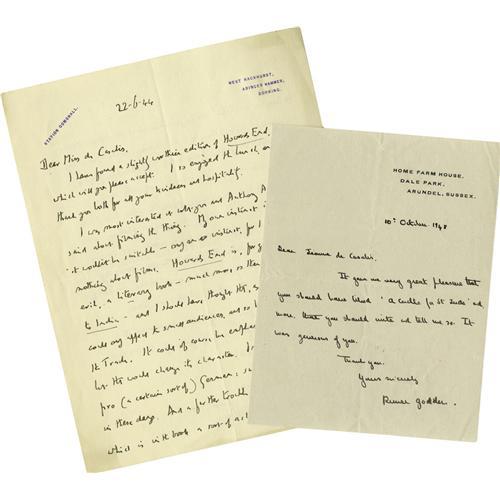 STATION GOMSHALL.
WEST HACKHURST,
ABINGER HAMMER,
DORKING.
22-6-44
Dear Miss de Casalis,
I have found a slightly worthier edition of Howards End,
which will you please accept. I so enjoyed the lunch, an
thank you both for all your kindness and hospitality.
I was most interested in what you and Anthony A
said about filming the thing. My own instinct i
it wouldn't be suitable — only an instinct, for I
nothing about films. Howards End is, for g
evil, a literary book — much more so than
to India — and I should have thought that,
could only appeal to small audiences, and so b
the Trade. It could of course be
but this would change its character.
pro (a certain sort of) German:
in these days. And a further trouble
which is in the book a sort of a
HOME FARM HOUSE,
DALE PARK,
ARUNDEL, SUSSEX.
10th October 1948
Dear Jeanne de Casalis,
It gave me very great pleasure that
you should have liked 'A Candle for St Jude' and
more, that you should write and tell me so. It
was generous of you.
Thank you.
Yours sincerely
Rumer Godden.